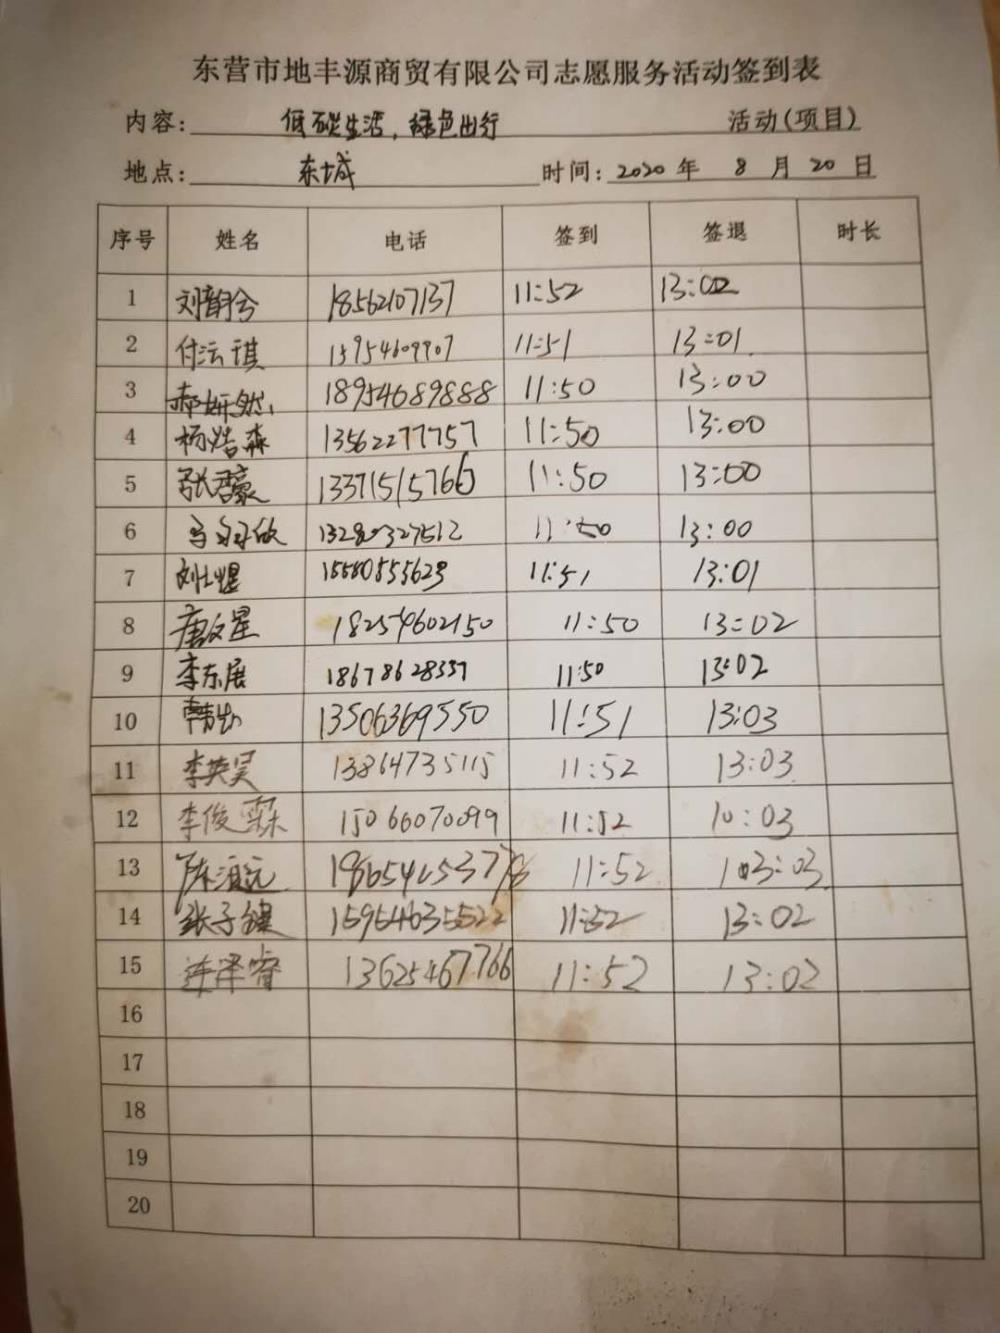 东营市地丰源商贸有限公司志愿服务活动签到表
内容: 低碳生活, 绿色出行 活动(项目)
地点: 东城 时间: 2020 年 8 月 20 日
序号 姓名 电话 签到 签退 时长
1 刘韵兮 18562107137 11:52 13:02
2 付沄琪 15954609907 11:51 13:01
3 郝妍然 18954689888 11:50 13:00
4 杨浩森 13562277757 11:50 13:00
5 张君豪 13371515766 11:50 13:00
6 11:50 13:00
7 11:51 13:01
8 唐文星 18254602150 11:50 13:02
9 李东展 18678628337 11:50 13:02
10 13506369550 11:51 13:03
11 李英昊 13864735115 11:52 13:03
12 李俊霖 15066070099 11:52 10:03
13 11:52
14 张子键 15954635522 11:52 13:02
15 连泽睿 13625467766 11:52 13:02
16
17
18
19
20